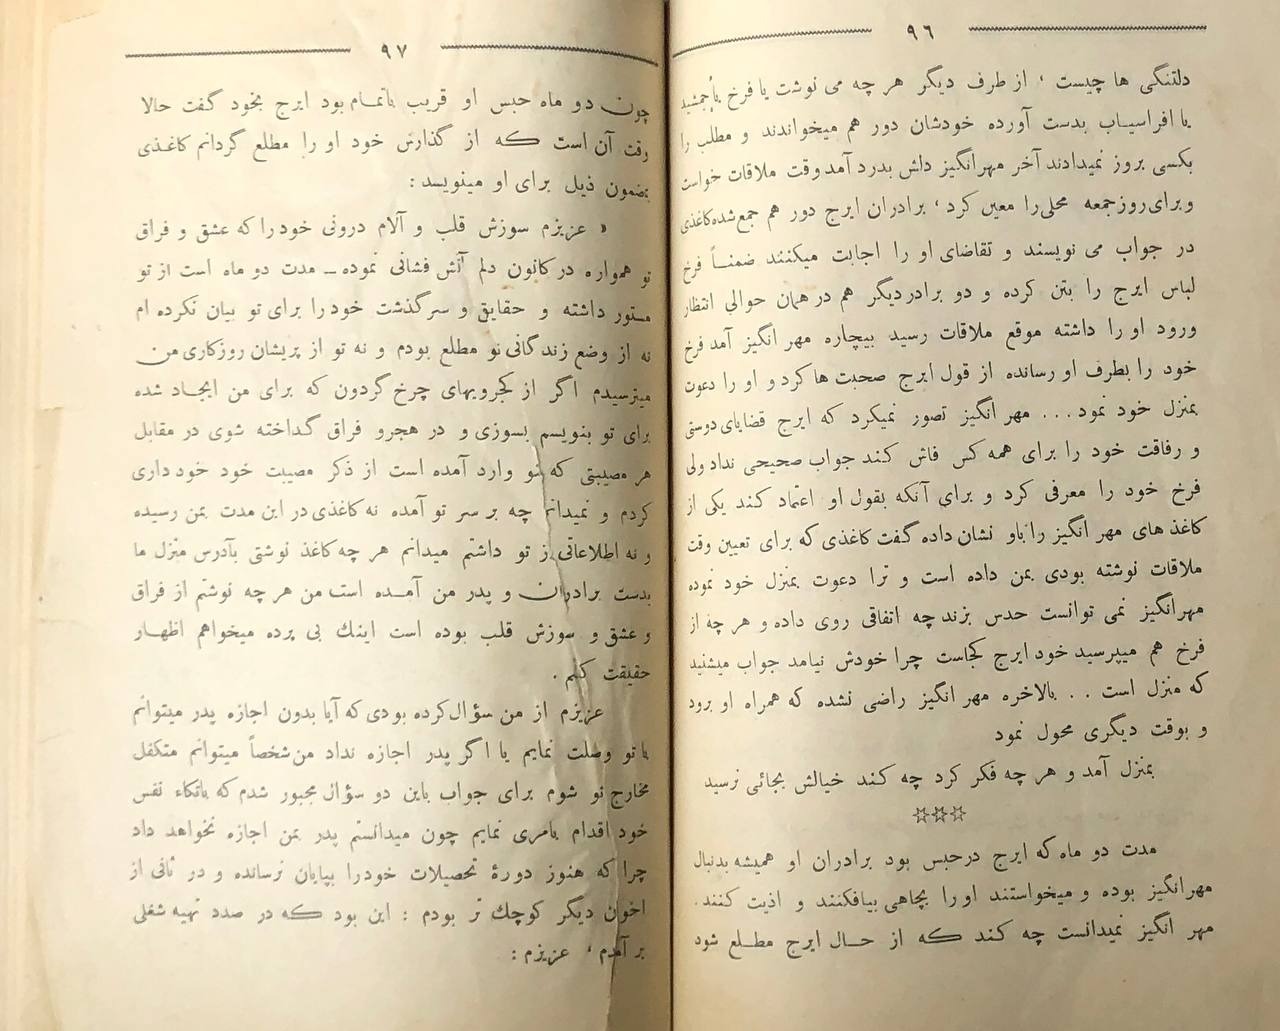 ۹٦
دلتنگی ها چیست ، از طرف دیگر هر چه می نوشت یا فرخ یا جمشید
یا افراسیاب بدست آورده خودشان دور هم میخواندند و مطلب را
بکسی بروز نمیدادند آخر مهرانگیز دلش بدرد آمد وقت ملاقات خواست
و برای روز جمعه محلی را معین کرد ، برادران ایرج دور هم جمع شده کاغذی
در جواب می نویسند و تقاضای او را اجابت میکنند ضمناً فرخ
لباس ایرج را بتن کرده و دو برادر دیگر هم در همان حوالی انتظار
ورود او را داشته موقع ملاقات رسید بیچاره مهر انگیز آمد فرخ
خود را بطرف او رسانده از قول ایرج صحبت ها کرد و او را دعوت
بمنزل خود نمود . . . مهر انگیز تصور نمیکرد که ایرج قضایای دوستی
و رفاقت خود را برای همه کس فاش کند جواب صحیحی نداد ولی
فرخ خود را معرفی کرد و برای آنکه بقول او اعتماد کند یکی از
کاغذ های مهر انگیز را باو نشان داده گفت کاغذی که برای تعیین وقت
ملاقات نوشته بودی بمن داده است و ترا دعوت بمنزل خود نموده
مهرانگیز نمی توانست حدس بزند چه اتفاقی روی داده و هر چه از
فرخ هم میپرسید خود ایرج کجاست چرا خودش نیامد جواب میشنید
که منزل است . . بالاخره مهر انگیز راضی نشده که همراه او برود
و بوقت دیگری محول نمود
بمنزل آمد و هر چه فکر کرد چه کند خیالش بجائی نرسید
☆☆☆
مدت دو ماه که ایرج در حبس بود برادران او همیشه بدنبال
مهرانگیز بوده و میخواستند او را بچاهی بیافکنند و اذیت کنند .
مهر انگیز نمیدانست چه کند که از حال ایرج مطلع شود
۹۷
چون دو ماه حبس او قریب باتمام بود ایرج بخود گفت حالا
وقت آن است که از گذارش خود او را مطلع گردانم کاغذی
بمضمون ذیل برای او مینویسد :
« عزیزم سوزش قلب و آلام درونی خود را که عشق و فراق
تو همواره در کانون دلم آتش فشانی نموده ـ مدت دو ماه است از تو
مستور داشته و حقایق و سرگذشت خود را برای تو بیان نکرده ام
نه از وضع زندگانی تو مطلع بودم و نه تو از پریشان روزکاری من
میترسیدم اگر از کجرویهای چرخ گردون که برای من ایجاد شده
برای تو بنویسم بسوزی و در هجر و فراق گداخته شوی در مقابل
هر مصیبتی که بتو وارد آمده است از ذکر مصیبت خود خود داری
کردم و نمیدانم چه بر سر تو آمده نه کاغذی در این مدت بمن رسیده
و نه اطلاعاتی از تو داشتم میدانم هر چه کاغذ نوشتی بآدرس منزل ما
بدست برادران و پدر من آمده است من هر چه نوشتم از فراق
و عشق و سوزش قلب بوده است اینك بی پرده میخواهم اظهار
حقیقت کنم .
عزیزم از من سؤال کرده بودی که آیا بدون اجازه پدر میتوانم
با تو وصلت نمایم یا اگر پدر اجازه نداد من شخصاً میتوانم متکفل
مخارج تو شوم برای جواب باین دو سؤال مجبور شدم که باتکاء نفس
خود اقدام بامری نمایم چون میدانستم پدر بمن اجازه نخواهد داد
چرا که هنوز دورهٔ تحصیلات خود را بپایان نرسانده و در ثانی از
اخوان دیگر کوچك تر بودم : این بود که در صدد تهیه شغلی
بر آمدم ، عزیزم :